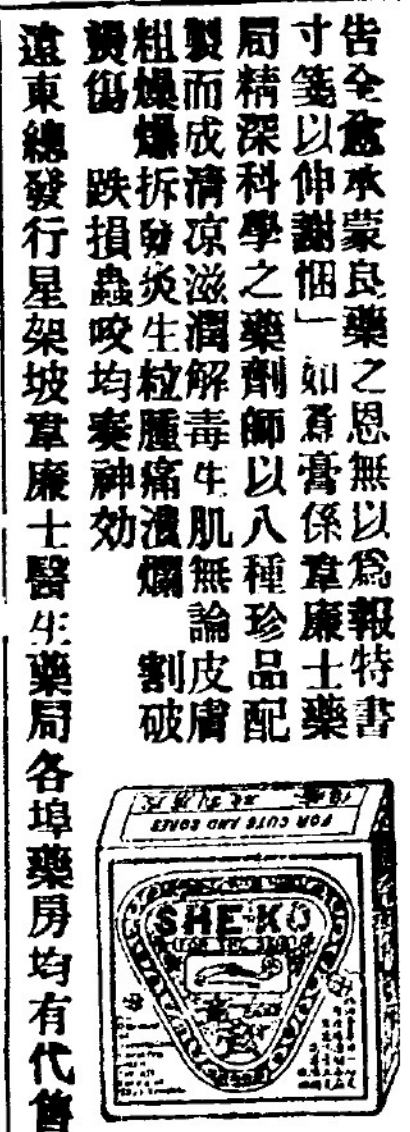 告全愈承蒙良藥之恩無以爲報特書
寸箋以伸謝悃」如膏係韋廉士藥
局精深科學之藥劑師以八種珍品配
製而成清凉滋潤解毒生肌無論皮膚
粗燥爆拆發炎生粒腫痛潰爛 割破
燙傷 跌損蟲咬均奏神効
遠東總發行星架坡韋廉士醫生藥局各埠藥房均有代售
FOR CUTS AND SORES
SHE-KO
FOR THE SKIN